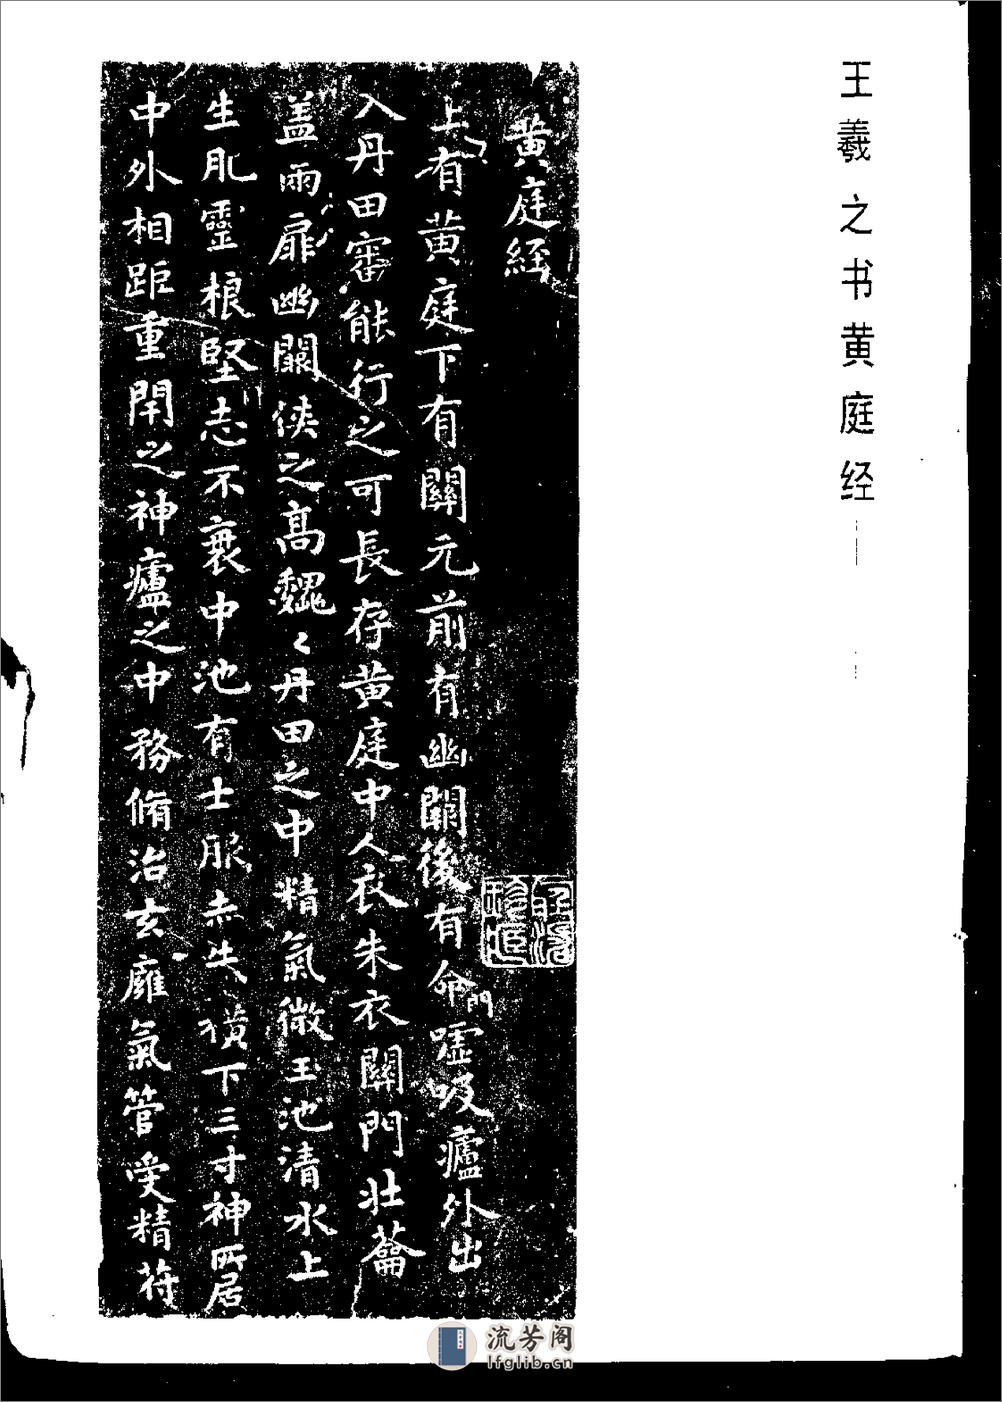 王羲之书黄庭经
黄庭経
上有黄庭下有關元前有幽闕後有命門嘘吸廬外出
入丹田審能行之可長存黄庭中人衣朱衣關門壮蘥
盖兩扉幽闕俠之高魏〻丹田之中精氣微玉池清水上
生肥靈根堅志不衰中池有士服赤朱橫下三寸神所居
中外相距重閉之神廬之中務脩治玄廱氣管受精苻
流芳阁
lfglib.cn